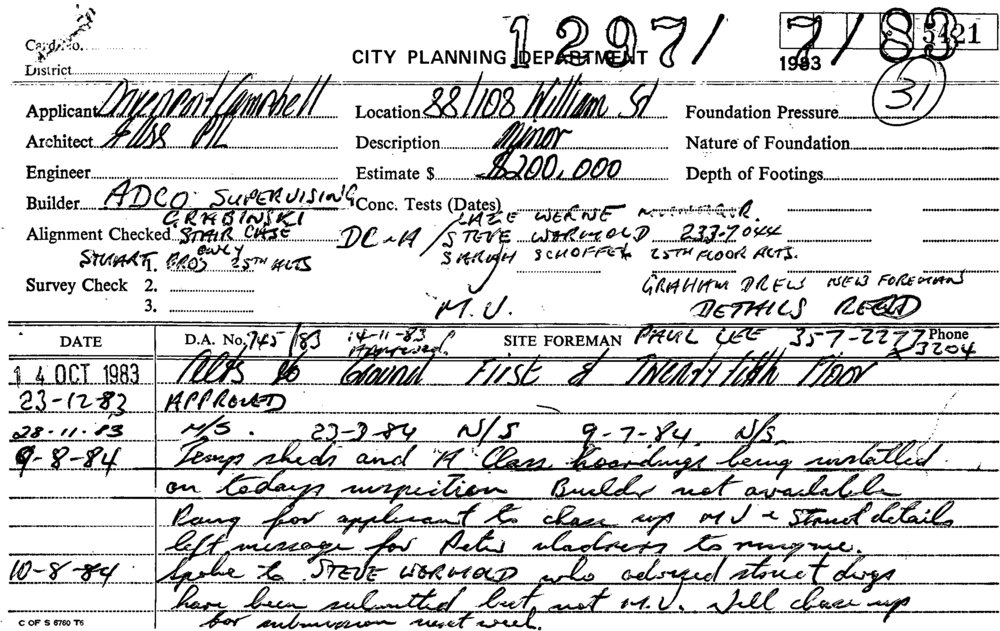 Card No.
1297/ 7/83 5421
CITY PLANNING DEPARTMENT 1983
District
31
Applicant Davenport Campbell Location 88/108 William St Foundation Pressure
Architect P/L Description Minor Nature of Foundation
Engineer Estimate $ $200,000 Depth of Footings
Builder ADCO SUPERVISING Conc. Tests (Dates)
GRABINSKI WERNE
Alignment Checked STAIR CASE ONLY DC+A / STEVE WORMOLD 233-7044
STUART BROS 25TH ALTS SARAH SCHOFFEL 25TH FLOOR ALTS.
1.
Survey Check 2. GRAHAM DREW NEW FOREMAN
3. M.V. DETAILS REQD
DATE D.A. No. 745/83 14-11-83 Approved. SITE FOREMAN PAUL LEE 357-2277 Phone
X 3204
14 OCT 1983 Alts to Ground First & Twentyfifth Floor
23-12-83 APPROVED
28-11-83 N/S. 23-3-84 N/S 9-7-84 N/S
9-8-84 Temp sheds and A Class hoardings being installed
on todays inspection Builder not available
Rang for applicant to chase up M V & Struct details
left message for Peter to ring me.
10-8-84 Spoke to STEVE WORMOLD who advised struct dwgs
have been submitted but not M.V. Will chase up
for submission next week.
C OF S 6760 T6